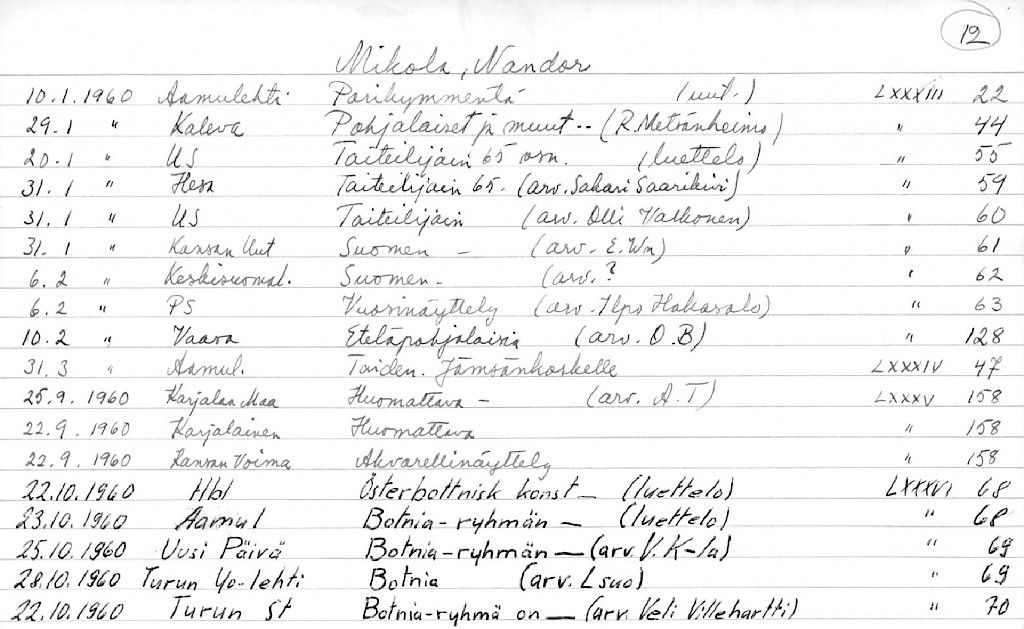 12
Mikola, Nandor
10.1.1960 Aamulehti Parikymmentä (uut.) LXXXIII 22
29.1 " Kaleva Pohjalaiset ja muut -- (R. Metsänheimo) " 44
20.1 " US Taiteilijain 65 osn. (luettelo) " 55
31.1 " Hesa Taiteilijain 65. (arv. Sakari Saarikivi) " 59
31.1 " US Taiteilijain (arv. Olli Valkonen) " 60
31.1 " Kansan Uut Suomen - (arv. E. Wn) " 61
6.2 " Keskisuomal. Suomen - (arv. ? " 62
6.2 " PS Vuosinäyttely (arv. Ilpo Hakasalo) " 63
10.2 " Vaasa Eteläpohjalaisia (arv. O.B) " 128
31.3 " Aamul. Taiden. Jämsänkoskelle LXXXIV 47
25.9.1960 Karjalan Maa Huomattava - (arv. A.T) LXXXV 158
22.9.1960 Karjalainen Huomattava " 158
22.9.1960 Kansan Voima Akvarellinäyttely " 158
22.10.1960 Hbl Österbottnisk konst - (luettelo) LXXXVI 68
23.10.1960 Aamul Botnia-ryhmän - (luettelo) " 68
25.10.1960 Uusi Päivä Botnia-ryhmän - (arv. V. K-la) " 69
28.10.1960 Turun Yo-lehti Botnia (arv. L suo) " 69
22.10.1960 Turun St Botnia-ryhmä on - (arv. Veli Villehartti) " 70